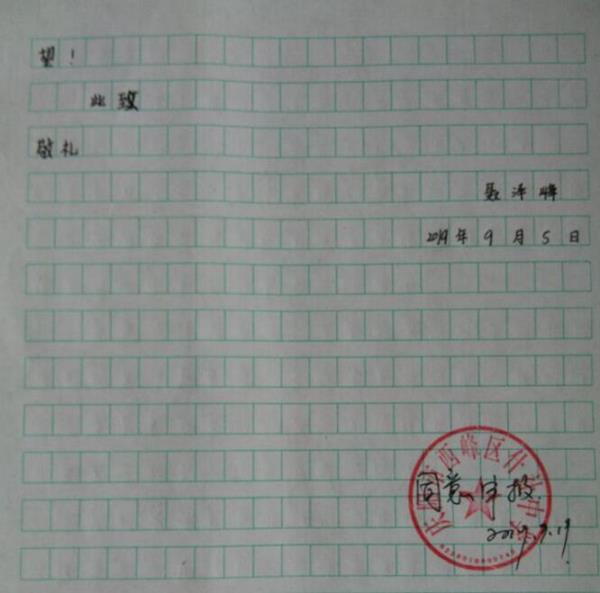 望！
此致
敬礼
聂泽峰
2019年9月5日
西峰区什
同意申报
2019.9.19